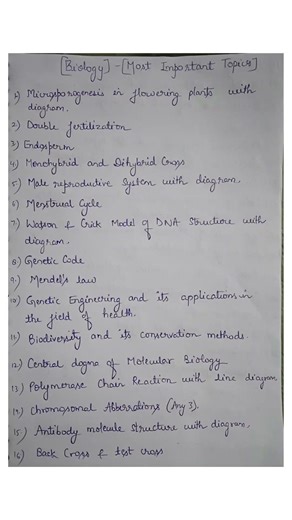 [Biology] - [Most Important Topics]
1) Microsporogenesis in flowering plants with
diagram.
2) Double fertilization
3) Endosperm
4) Monohybrid and Dihybrid Cross
5) Male reproductive System with diagram.
6) Menstrual Cycle
7) Watson & Crick Model of DNA Structure with
diagram.
8) Genetic Code
9) Mendel's law
10) Genetic Engineering and its applications in
the field of health.
11) Biodiversity and its conservation methods.
12) Central dogma of Molecular Biology
13) Polymerase Chain Reaction with line diagram,
14) Chromosomal Abberrations (Any 3).
15) Antibody molecule structure with diagram.
16) Back Cross & test cross